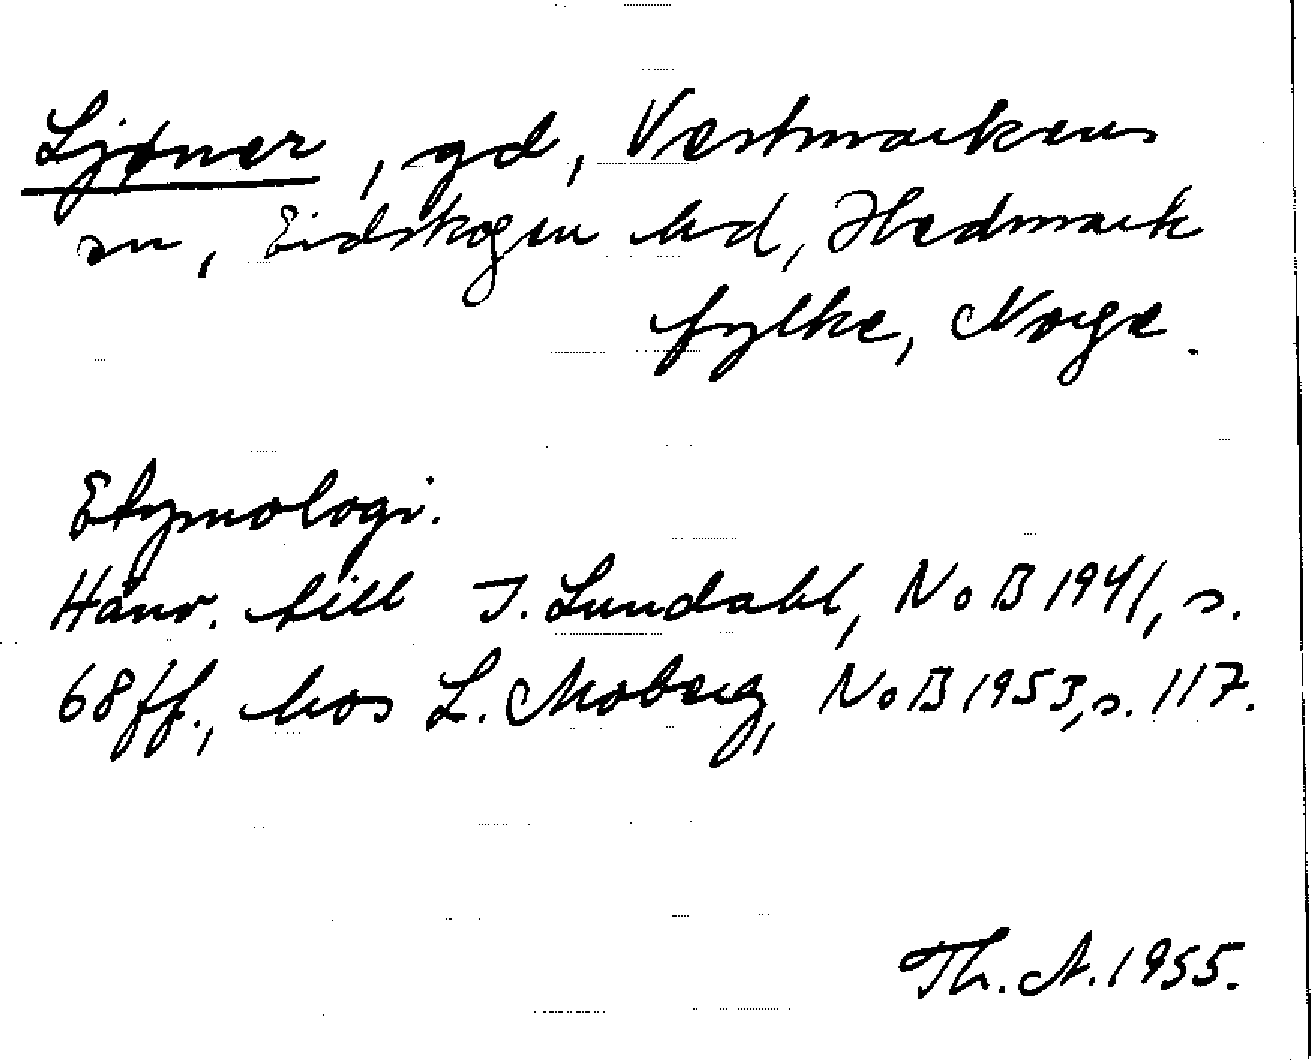 Ljøner, gd, Vestmarkens
sn, Eidskogen hd, Hedmark
fylke, Norge.
Etymologi.
Hänv. till I. Lundahl, NoB 1941, s.
68 ff., hos L. Moberg, NoB 1953, s. 117.
Th. A. 1955.